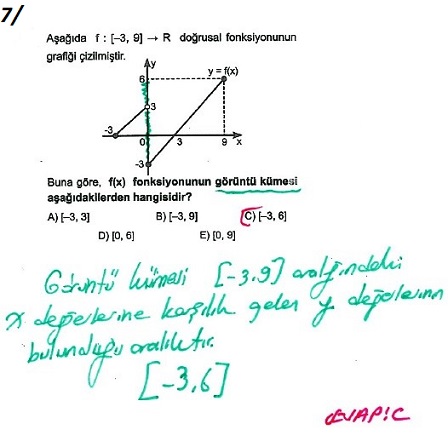 7/
Aşağıda f : [–3, 9] → R doğrusal fonksiyonunun
grafiği çizilmiştir.
y
6
y = f(x)
3
-3
0
3
9
x
-3
Buna göre, f(x) fonksiyonunun görüntü kümesi
aşağıdakilerden hangisidir?
A) [–3, 3] B) [–3, 9] C) [–3, 6]
D) [0, 6] E) [0, 9]
Görüntü kümesi [-3,9] aralığındaki
x değerlerine karşılık gelen y değerlerinin
bulunduğu aralıktır.
[-3,6]
CEVAP!C